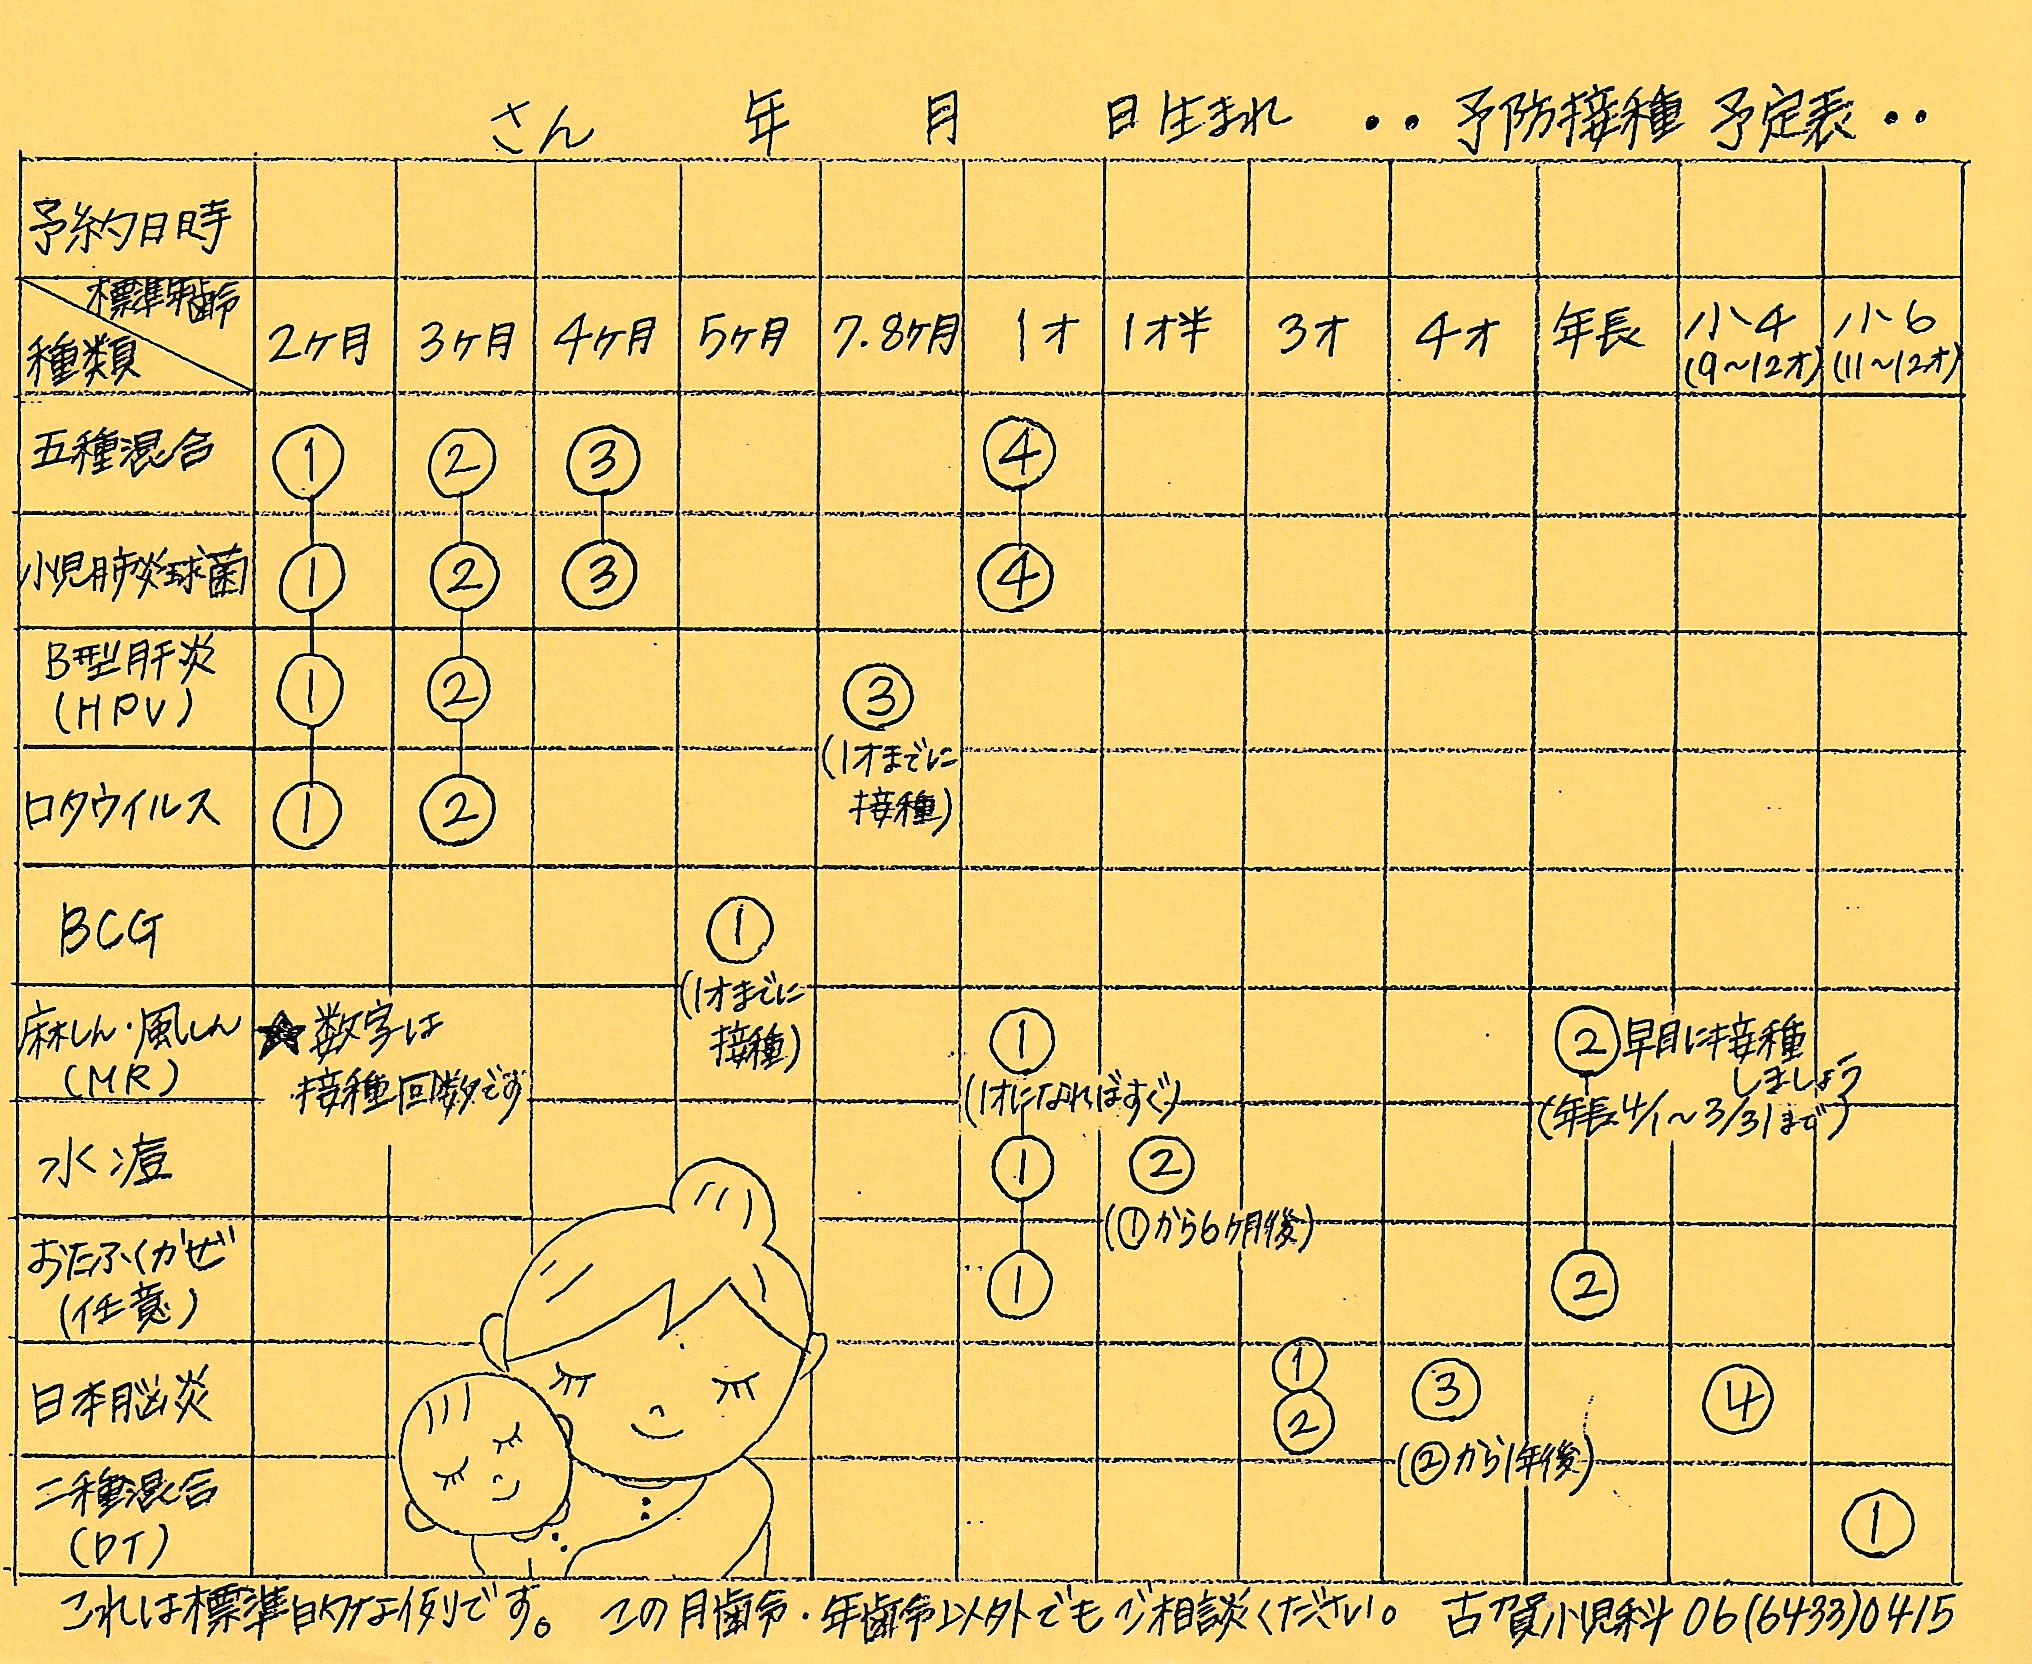 さん 年 月 日生まれ ・・予防接種 予定表・・
予約日時
標準年齢
種類 2ヶ月 3ヶ月 4ヶ月 5ヶ月 7.8ヶ月 1才 1才半 3才 4才 年長 小4 小6
(9〜12才) (11〜12才)
五種混合 ① ② ③ ④
小児肺炎球菌 ① ② ③ ④
B型肝炎 ① ② ③
(HPV)
(1才までに
接種)
ロタウイルス ① ②
BCG ①
(1才までに
接種)
麻しん・風しん ① ② 早目に接種
(MR) しましょう
★数字は
接種回数です
(1才になればすぐ) (年長4/1〜3/31まで)
水痘 ① ②
(①から6ヶ月後)
おたふくかぜ ① ②
(任意)
日本脳炎 ① ② ③ ④
(②から1年後)
二種混合 ①
(DT)
これは標準的な例です。 この月齢・年齢以外でもご相談ください。 古賀小児科 06(6433)0415